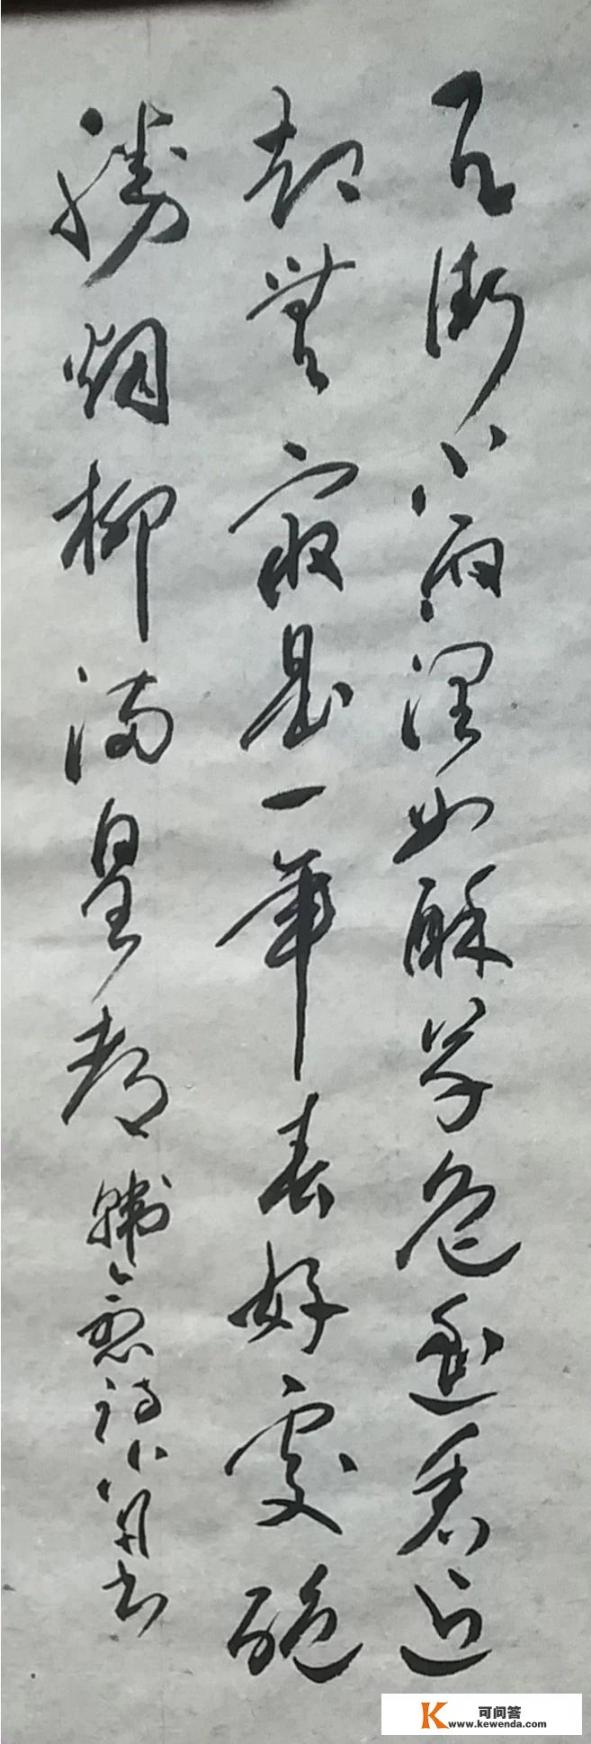 天街小雨润如酥草色遥看近
却無最是一年春好處絶
勝烟柳满皇都 韓愈诗 书
可问答
www.kewenda.com